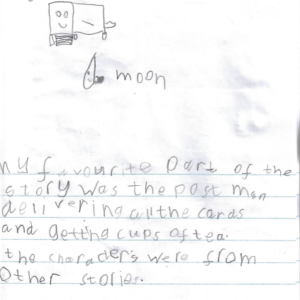 moon
my favourite part of the
story was the post man
dellvering all the cards
and getting cups of tea.
the character's were from
other stories.